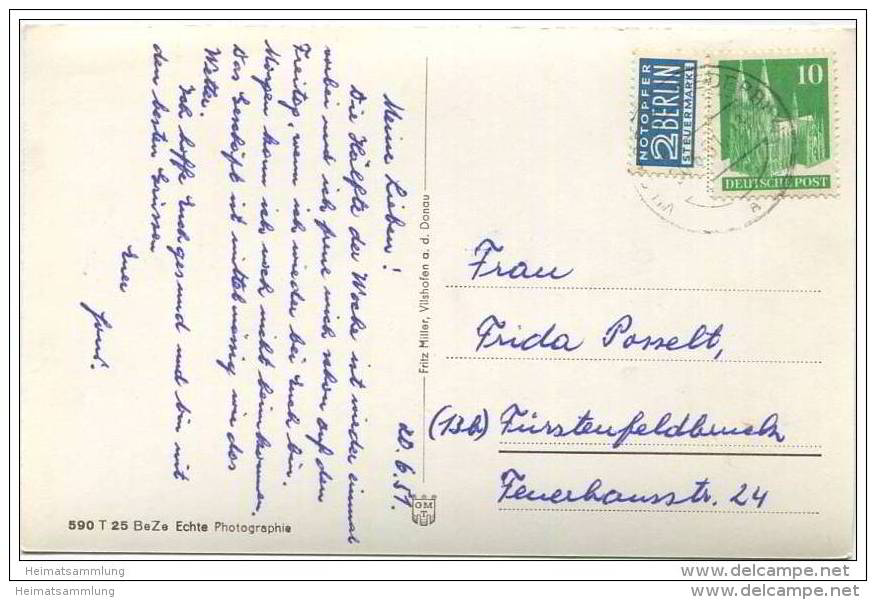 20.6.51.
Meine Lieben!
Die Hälfte der Woche ist wieder einmal
vorbei und ich freue mich schon auf den
Freitag, wenn ich wieder bei Euch bin.
Morgen kann ich noch nicht heimkommen.
Das Geschäft ist mittelmässig wie das
Wetter.
Ich hoffe Euch gesund und bin mit
den besten Grüssen
Euer
NOTOPFER
2 BERLIN
STEUERMARKE
10
DEUTSCHE POST
Fritz Miller, Vilshofen a. d. Donau
Frau
Frida Posselt,
(13b) Fürstenfeldbruck
Feuerhausstr. 24
OM
T
590 T 25 BeZe Echte Photographie
Heimatsammlung
Heimatsammlung
www.delcampe.net
www.delcampe.net